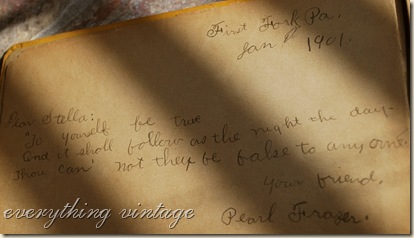 First Fork Pa.
Jan 1901.
Dear Stella:
"To yourself be true
And it shall follow as the night the day-
Thou can' not they be false to any one."
Your friend,
Pearl Frazer.
everything vintage